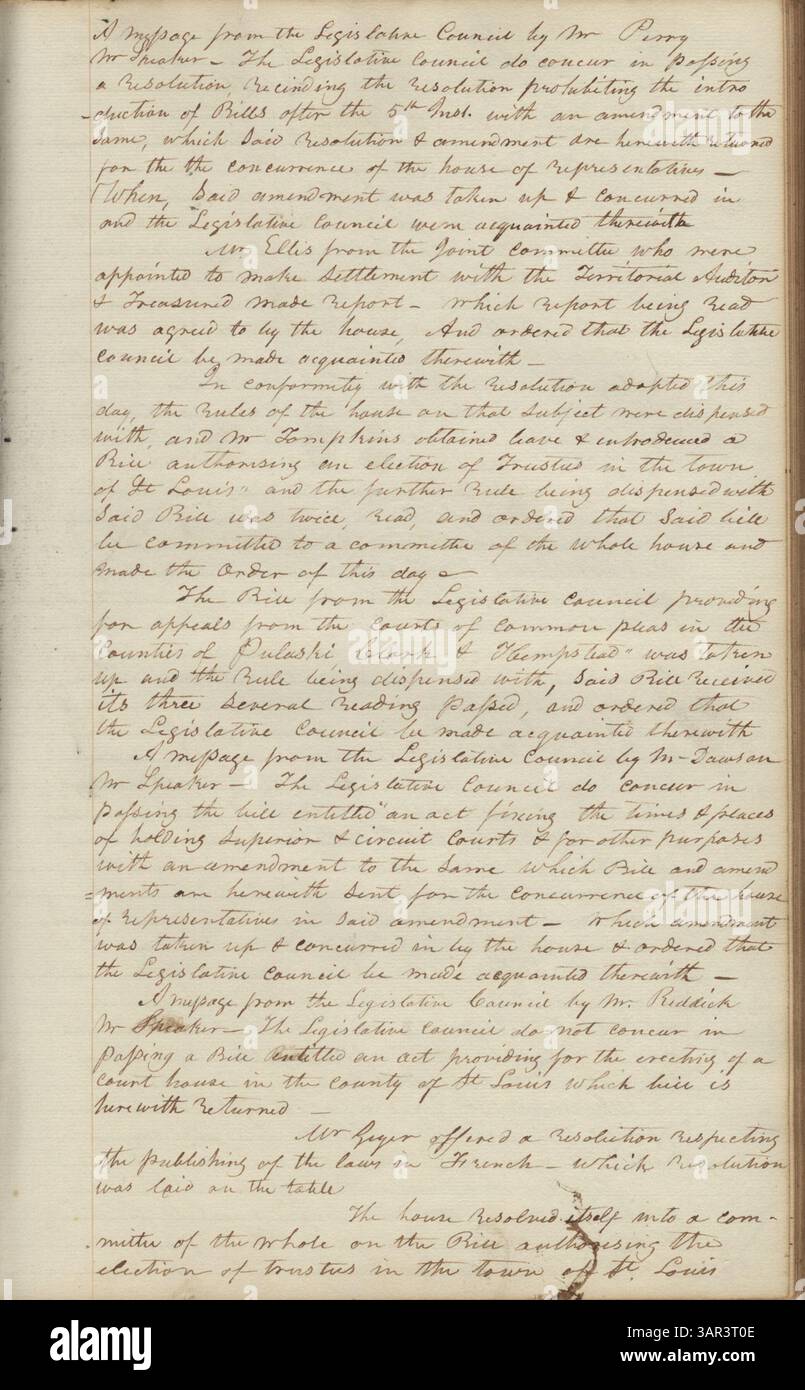 A message from the Legislative Council by Mr Perry
Mr Speaker – The Legislative Council do concur in passing
a Resolution, Recinding the Resolution prohibiting the intro
duction of Bills after the 5th Inst. with an amendment to the
same, which said Resolution & amendment are herewith returned
for the the concurrence of the house of representatives –
When, Said amendment was taken up & concurred in
and the Legislative Council were acquainted therewith
Mr Ellis from the Joint committee who were
appointed to make settlement with the Territorial Auditor
& Treasured made report – which report being read
was agreed to by the house, And ordered that the Legislative
council be, made acquainted therewith –
In conformity with the resolution adopted this
day, the rules of the house on that subject were dispensed
with, and Mr Tompkins obtained leave & introduced a
Bill authorising an election of Trustees in the town
of St Louis" and the further rule being dispensed with
said Bill was twice, read, and ordered that said bill
be committed to a committee of the whole house and
made the order of this day
The Bill from the Legislative council providing
for appeals from the courts of common pleas in the
counties of Pulaski, Clark & Hempstead" was taken
up and the rule being dispensed with, said Bill received
its three several reading passed, and ordered that
the Legislative Council be made acquainted therewith
A message from the Legislative Council by Mr Dawson
Mr Speaker – The Legislative council do concur in
passing the bill entitled "an act fixing the times & places
of holding superior & circuit courts & for other purposes
with an amendment to the same which Bill and amend
=ments are herewith sent for the concurrence of the house
of representatives in said amendment – Which amendment
was taken up & concurred in by the house & ordered that
the Legislative council be made acquainted therewith –
A message from the Legislative Council by Mr. Reddick
Mr Speaker – The Legislative council do not concur in
passing a Bill entitled an act providing for the erecting of a
court house in the county of St Louis which bill is
herewith returned –
Mr Geyer offered a resolution respecting
the publishing of the laws in French – which resolution
was laid on the table
The house resolved itself into a com-
mittee of the whole on the Bill authorising the
election of trustees in the town of St. Louis
alamy
Image ID: 3AR3T0E
www.alamy.com